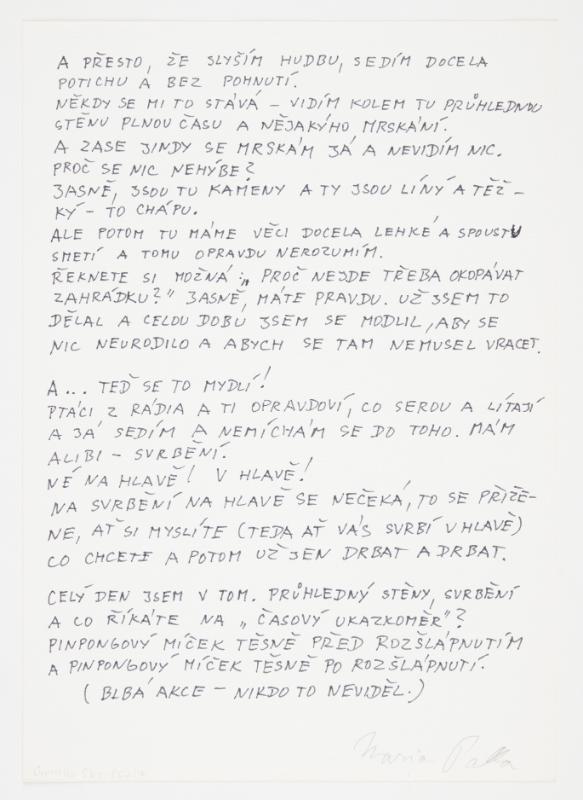 A PŘESTO, ŽE SLYŠÍM HUDBU, SEDÍM DOCELA
POTICHU A BEZ POHNUTÍ.
NĚKDY SE MI TO STÁVÁ – VIDÍM KOLEM TU PRŮHLEDNOU
STĚNU PLNOU ČASU A NĚJAKÝHO MRSKÁNÍ.
A ZASE JINDY SE MRSKÁM JÁ A NEVIDÍM NIC.
PROČ SE NIC NEHÝBE?
JASNĚ, JSOU TU KAMENY A TY JSOU LÍNÝ A TĚŽ –
KÝ – TO CHÁPU.
ALE POTOM TU MÁME VĚCI DOCELA LEHKÉ A SPOUSTU
SMETÍ A TOMU OPRAVDU NEROZUMÍM.
ŘEKNETE SI MOŽNÁ: „PROČ NEJDE TŘEBA OKOPÁVAT
ZAHRÁDKU?" JASNĚ, MÁTE PRAVDU. UŽ JSEM TO
DĚLAL A CELOU DOBU JSEM SE MODLIL, ABY SE
NIC NEURODILO A ABYCH SE TAM NEMUSEL VRACET.
A... TEĎ SE TO MYDLÍ!
PTÁCI Z RÁDIA A TI OPRAVDOVÍ, CO SEROU A LÍTAJÍ
A JÁ SEDÍM A NEMÍCHÁM SE DO TOHO. MÁM
ALIBI – SVRBĚNÍ.
NÉ NA HLAVĚ! V HLAVĚ!
NA SVRBĚNÍ NA HLAVĚ SE NEČEKÁ, TO SE PŘIŽE–
NE, AŤ SI MYSLÍTE (TEDA AŤ VÁS SVRBÍ V HLAVĚ)
CO CHCETE A POTOM UŽ JEN DRBAT A DRBAT.
CELÝ DEN JSEM V TOM. PRŮHLEDNÝ STĚNY, SVRBĚNÍ
A CO ŘÍKÁTE NA „ČASOVÝ UKAZKOMĚR"?
PINPONGOVÝ MÍČEK TĚSNĚ PŘED ROZŠLÁPNUTÍM
A PINPONGOVÝ MÍČEK TĚSNĚ PO ROZŠLÁPNUTÍ.
(BLBÁ AKCE – NIKDO TO NEVIDĚL.)